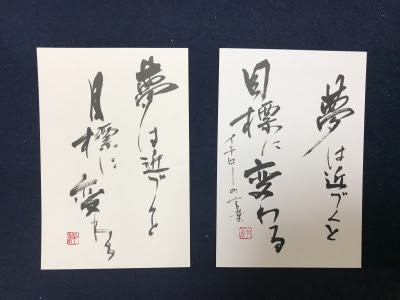 夢は近づくと
目標に
変わる
夢は近づくと
目標に変わる
イチローの言葉